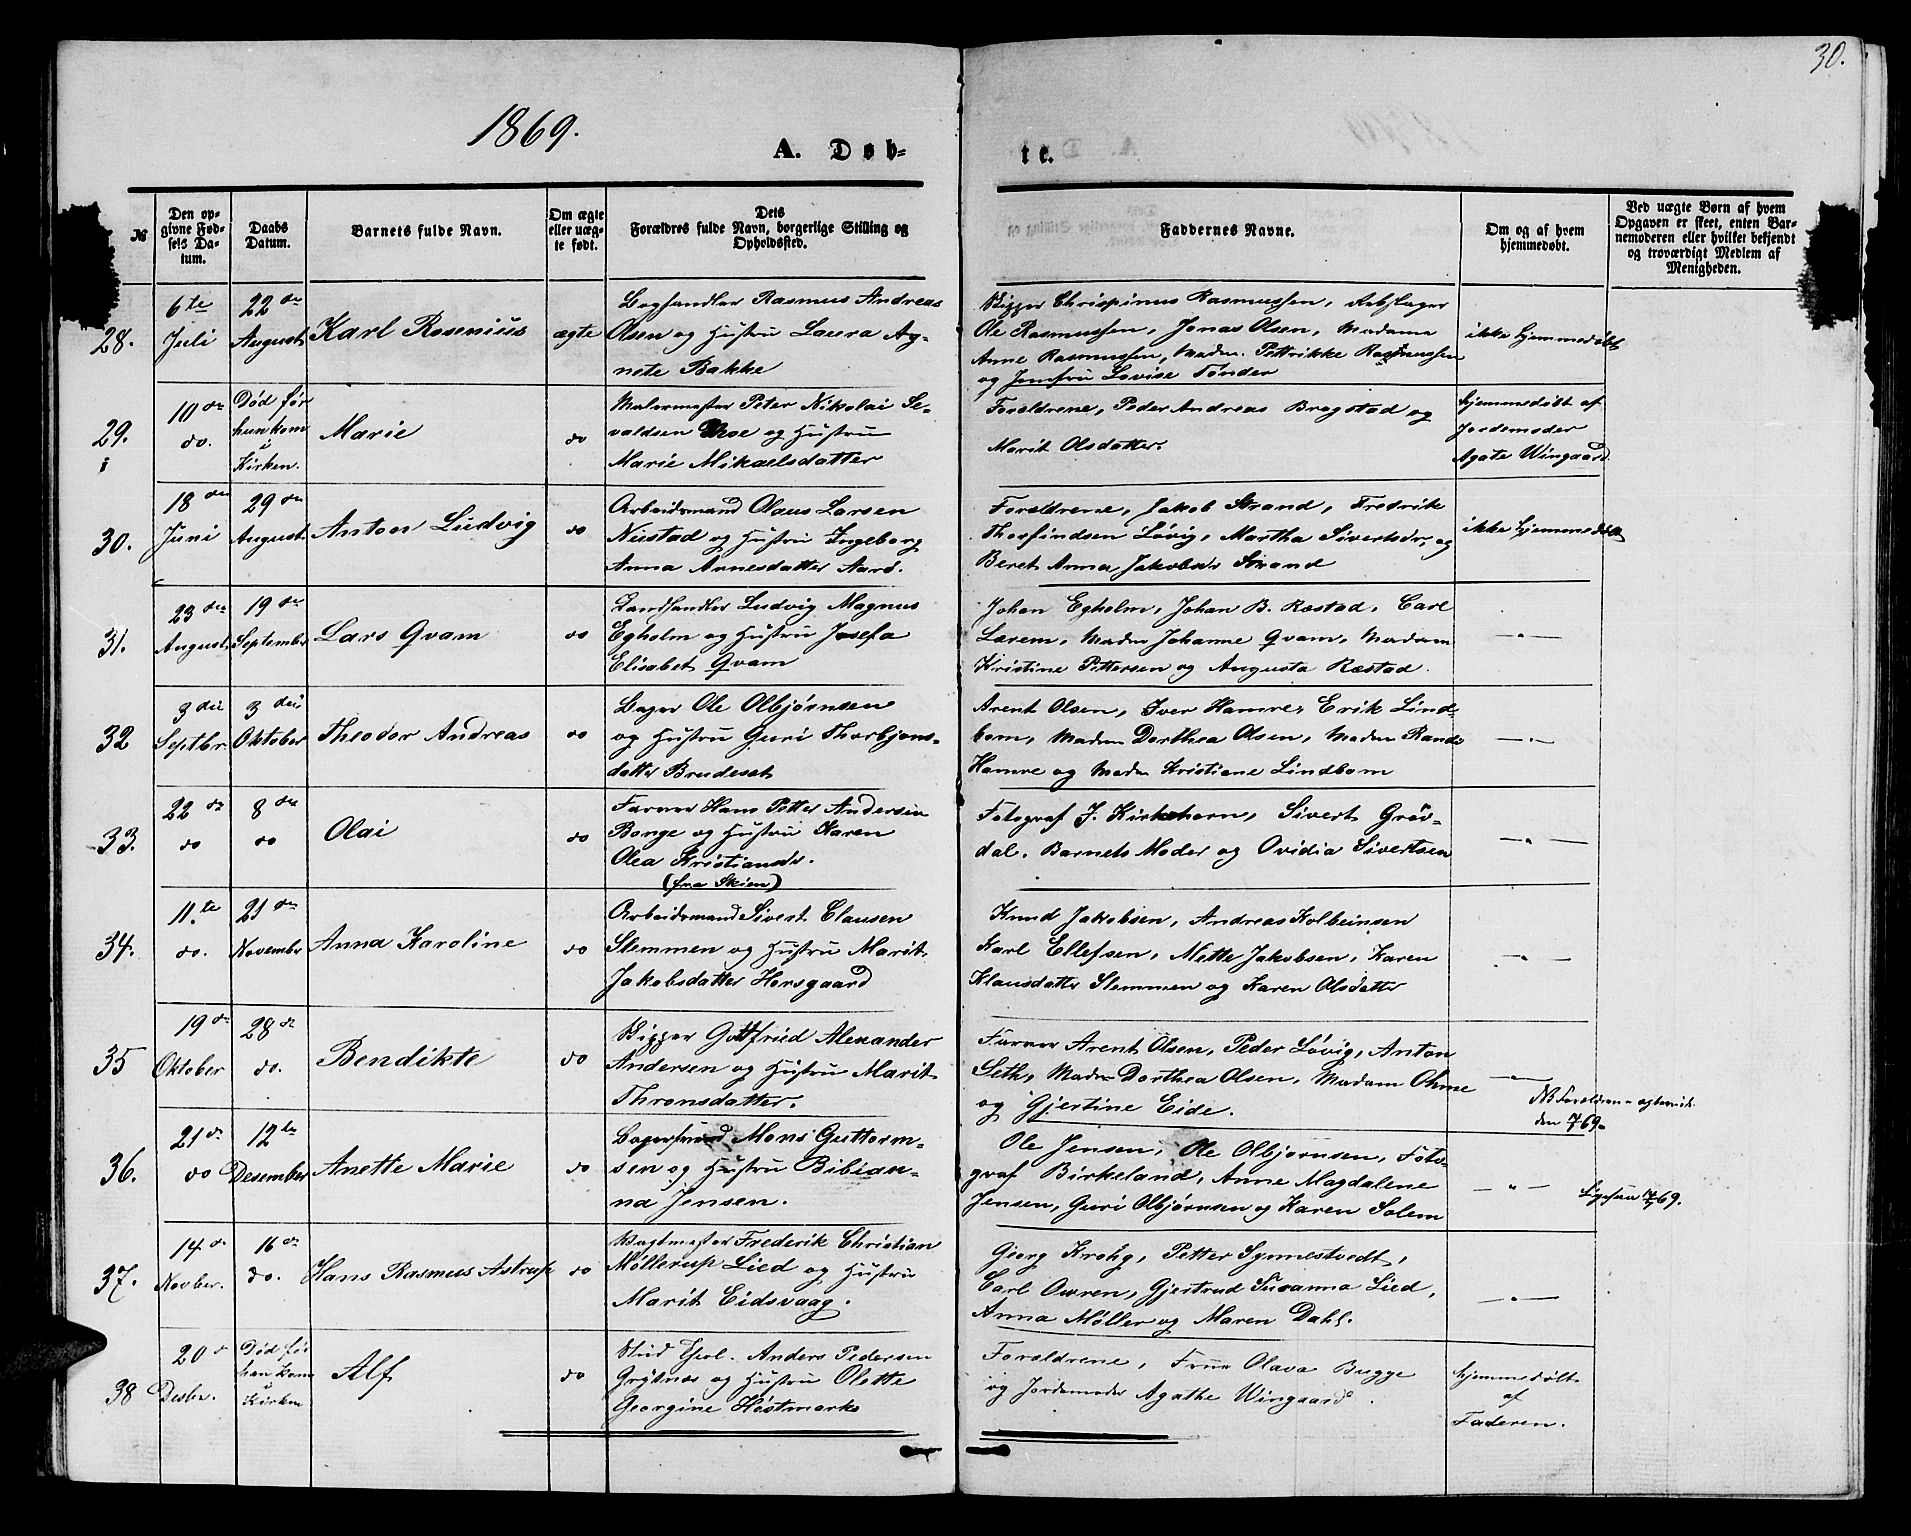 30.
1869.
A. Døb-
te.
№
Den op-
givne Fød-
sels Da-
tum.
Daabs
Datum.
Barnets fulde Navn.
Om ægte
eller uæg-
te født.
Dets
Forældres fulde Navn, borgerlige Stilling og
Opholdssted.
Faddernes Navne.
Om og af hvem
hjemmedøbt.
Ved uægte Børn af hvem
Opgaven er skeet, enten Bar-
nemoderen eller hvilket bekjendt
og troværdigt Medlem af
Menigheden.
28.
6te
Juli
22de
August
Karl Rosenius
ægte
Boghandler Rasmus Andreas
Olsen og Hustru Laura Ag-
nete Bakke
Skipper Chrispinus Rasmussen,
Ole Rasmussen, Jonas Olsen, Madame
Anne Rasmussen, Madm. Pettrikke Rasmussen
og Jomfru Lovise Tønder
ikke hjemmedøbt
29.
10de
do.
Død før
hun kom
i
Kirken.
Marie
do
Malermester Peter Nikolai Se-
valdsen og Hustru
Marie Mikaelsdatter
Forældrene, Peder Andreas Brogstad og
Marit Olsdatter.
hjemmedøbt af
Jordemoder
Agate Wingaard
30.
18de
Juni
29de
August
Anton Ludvig
do
Arbeidsmand Olaus Larsen
Nustad og Hustru Ingeborg
Anna Arnesdatter Aarø.
Forældrene, Jakob Strand, Fredrik
Thorfindsen Løvig, Martha Sivertsdr, og
Beret Anna Jakobsdr Strand
ikke hjemmedøbt
31.
23de
August
19de
September
Lars Qvam
do
Landhandler Ludvig Magnus
Egholm og Hustru Josefa
Elisabet Qvam
Johan Egholm, Johan B. Ræstad, Carl
Larem, Madm Johanne Qvam, Madam
Kristine Pettersen og Augusta Ræstad.
— " —
32
3die
Septbr.
3die
Oktober
Theodor Andreas
do
Bager Ole Olbjørnsen
og Hustru Guri Thorbjøns-
datter Brudeset
Arent Olsen, Iver Hamre, Erik Lind-
bom, Madm Dorthea Olsen, Madm Randi
Hamre og Madm Kristiane Lindbom
— " —
33.
22de
do
8de
do
Olai
do
Farver Hans Petter Andersen
Bonge og Hustru Karen
Olea Kristiansdr.
(fra Skien)
Fotograf J. Kirkhorn, Sivert Grøv-
dal. Barnets Moder og Ovidia Sivertsen
— " —
34.
11.te
do.
21de
November
Anna Karoline
do
Arbeidsmand Sivert Clausen
Slemmen og Hustru Marit
Jakobsdatter Horsgaard
Knud Jakobsen, Andreas Kolbeinsen
Karl Ellefsen, Mette Jakobsen, Karen
Klausdatter Slemmen og Karen Olsdatter
— " —
35
19de
Oktober
28de
do.
Bendikte
do
Skipper Gottfried Alexander
Andersen og Hustru Marit
Thronsdatter.
Farver Arent Olsen, Peder Løvig, Anton
Seth, Madm Dorthea Olsen, Madam Ohme
og Gjertine Eide.
— " —
NB Forældrene
den 69.
36.
21de
do
12te
Desember
Anette Marie
do
Mons Guttorm-
sen og Hustru Bibian-
na Jensen.
Ole Jensen, Ole Olbjørnsen, Foto-
graf Birkeland, Anne Magdalene
Jensen, Guri Olbjørnsen og Karen Solem
— " —
Ligesaa 69.
37.
14de
Novber.
16de
do.
Hans Rasmus Astrup
do
Vagtmester Frederik Christian
Møllerup Lied og Hustru
Marit Eidsvaag.
Georg Krohg, Petter Synnestvedt,
Carl Owren, Gjertrud Susanna Lied,
Anna Møller og Maren Dahl.
— " —
38
20de
Desbr.
Død før
han kom
i
Kirken
Alf
do
Stud theol. Anders Pedersen
Grytnæs og Hustru Olette
Georgine Høstmark
Forældrene, Frue Olava Bugge
og Jordemoder Agathe Wingaard.
hjemmedøbt
af
Faderen.